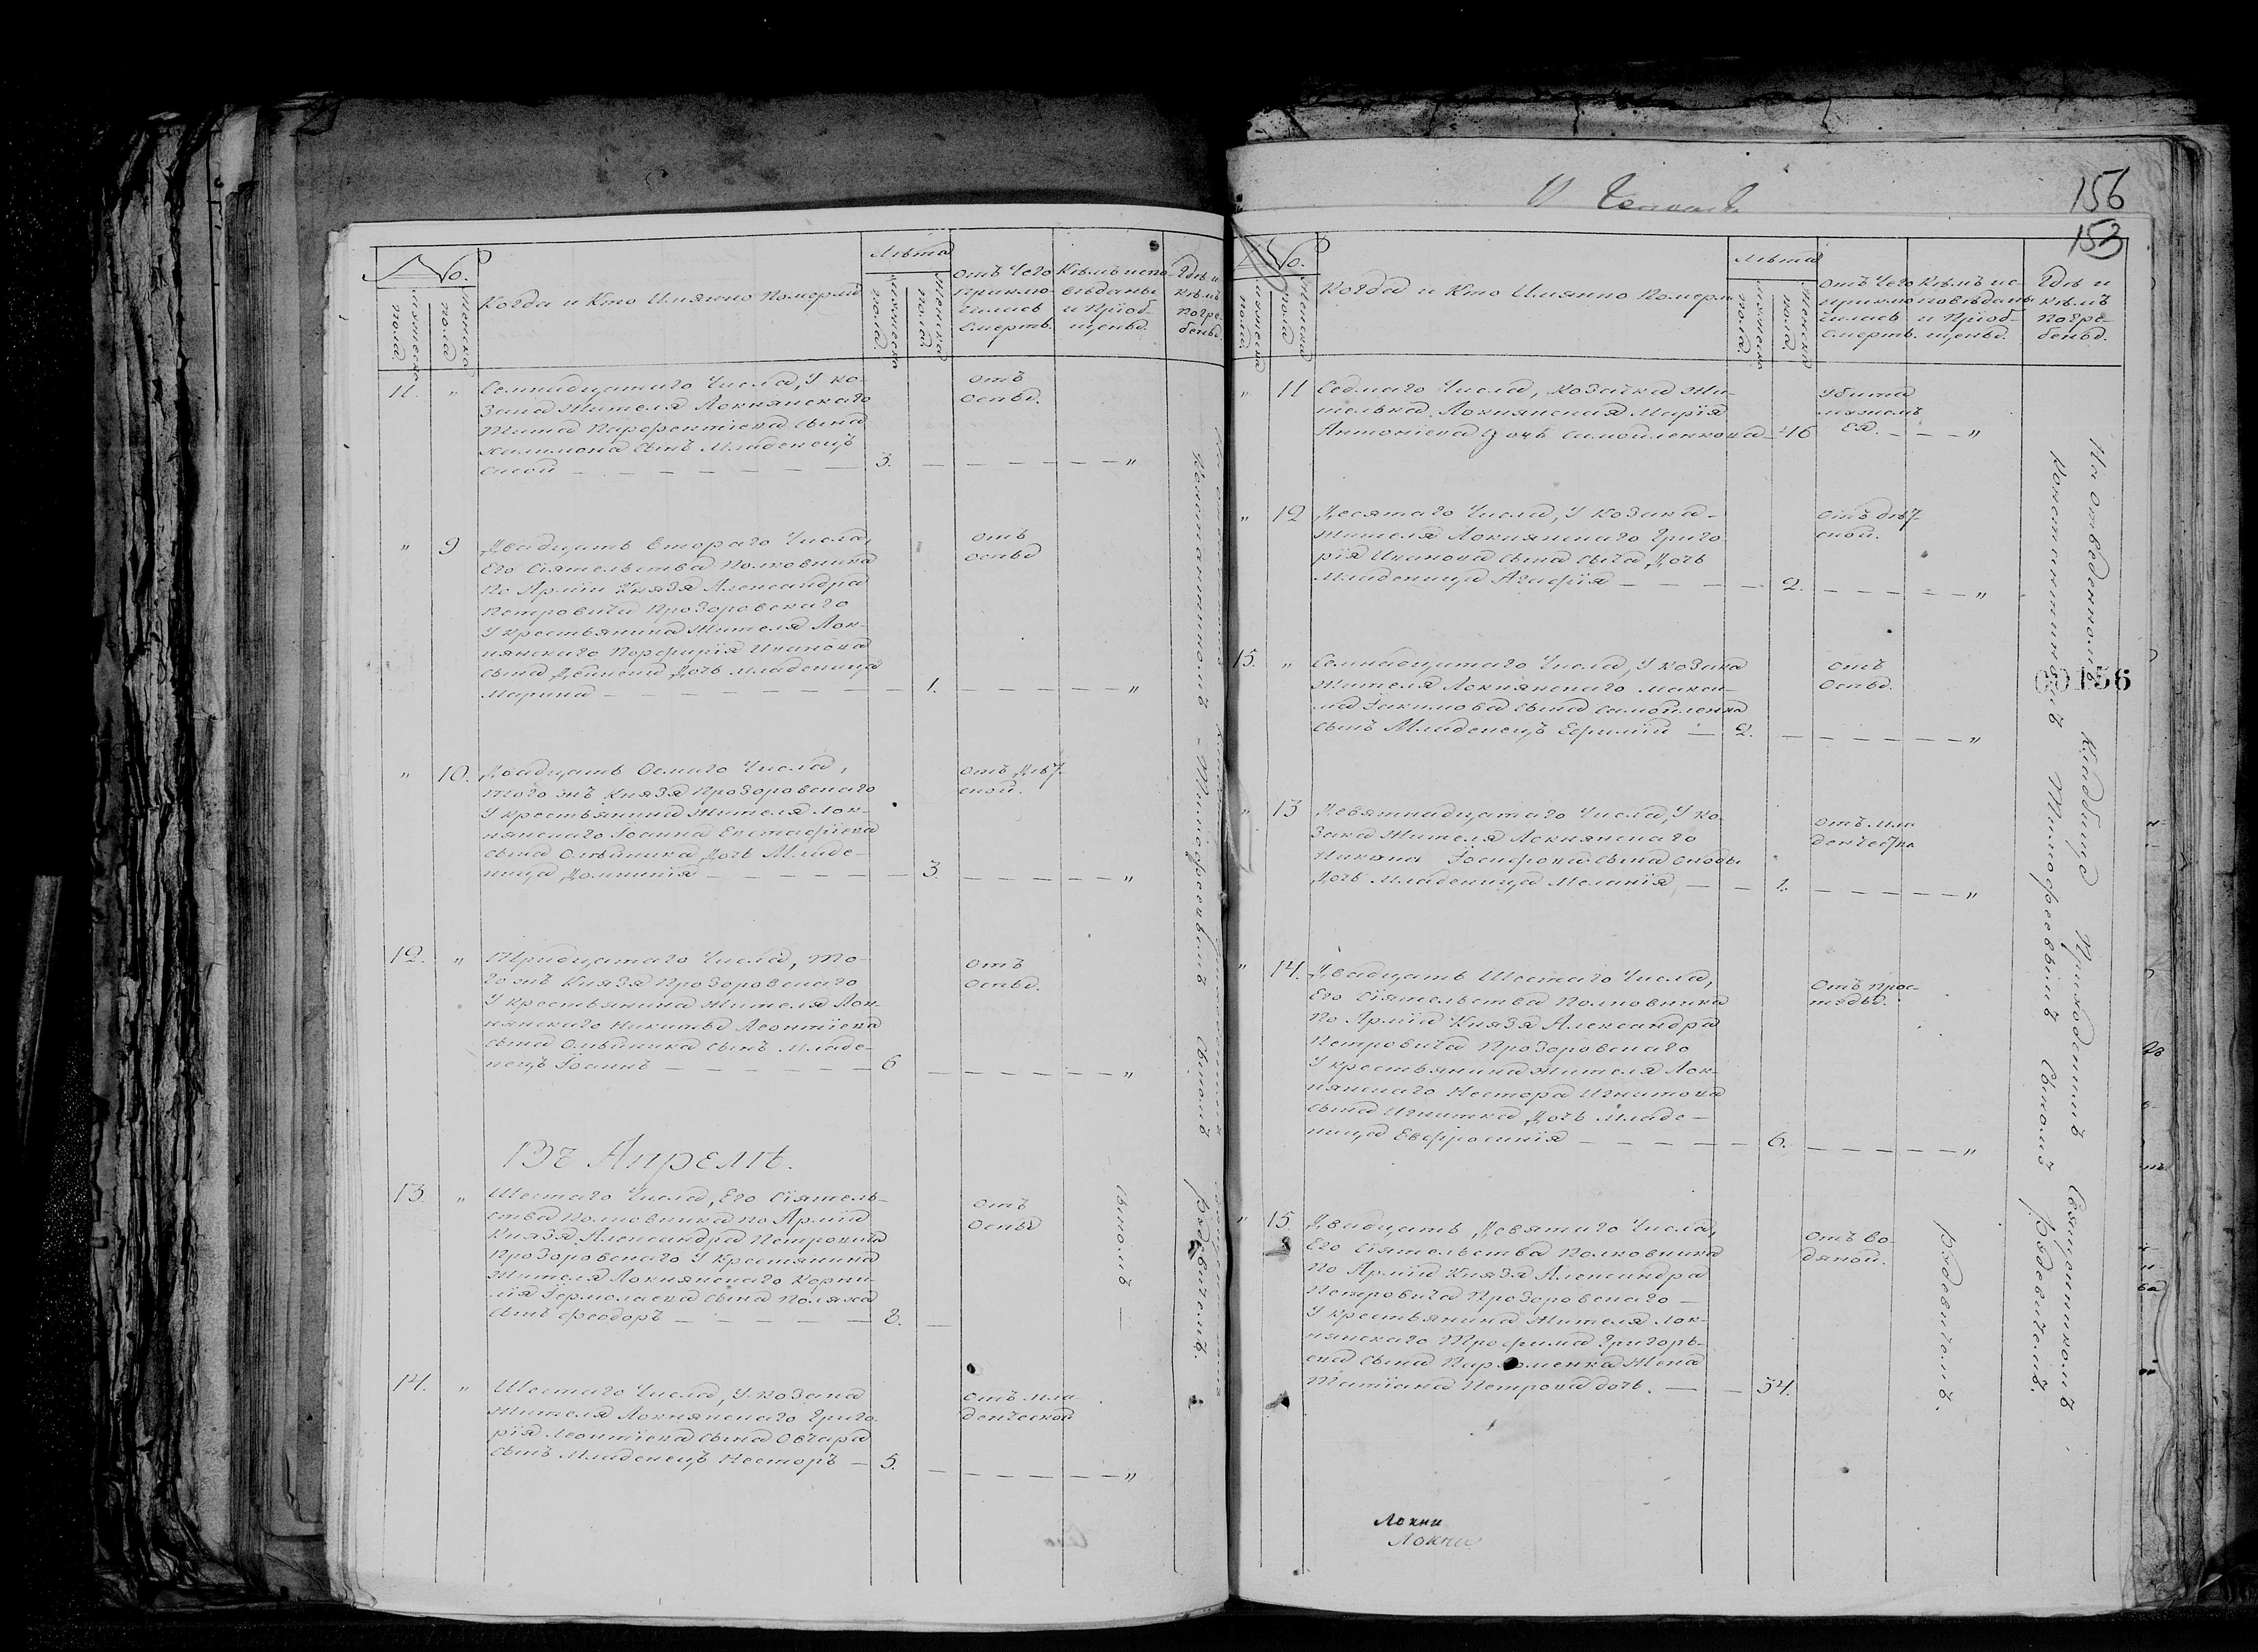 No.
мужеска пола
женска пола
Когда и Кто Имянно Померли
Лѣта
мужеска пола.
женска пола.
отъ Чего приклю-
чилась
Смерть.
Кѣмъ испо-
вѣданы
и Пріоб-
щены.
Гдѣ и
кѣмъ
погре-
бены.
11. „ Семнадцатаго Числа, У ко-
зака Жителя Локнянскаго
Тита сына
сынъ Младенецъ
— 3. — „
отъ
оспы.
„ 9 Двадцать Втораго Числа,
Его Сіятельства Полковника
По Арміи Князя Александра
Петровича Прозоровскаго
У крестьянина Жителя Лок-
нянскаго Порфирія Иванова
сына Дочь младеница
Марина — 1. — „
отъ
оспы
„ 10. Двадцать Осмаго Числа,
того жъ Князя Прозоровскаго
У крестьянина Жителя Лок-
нянскаго Іоанна Евстафіева
сына Олѣйника Дочь Младе-
ница Домникія — 3. — „
отъ Дѣт-
ской.
12. „ Тридцатаго Числа, То-
го жъ Князя Прозоровскаго
У крестьянина Жителя Лок-
нянскаго Никиты Леонтіева
сына Олѣйника сынъ Младе-
нецъ Іоаннъ — 6 — „
отъ
оспы.
Въ Апрелѣ.
13 „ Шестаго Числа, Его Сіятель-
ства Полковника по Арміи
Князя Александра Петровича
Прозоровскаго У крестянина
Жителя Локнянскаго Корни-
лія Іермолаева сына
сынъ Феодоръ — 3. —
отъ
оспы
14. „ Шестаго Числа, У козака
Жителя Локнянскаго Григо-
рія Леонтіева сына Овчара
сынъ Младенецъ Несторъ — 5. — „
отъ мла-
денческой
Константиномъ Тимофеевымъ Сыномъ Радевичемъ.
Сыномъ —
156
153
No.
мужеска пола
женска пола
Когда и Кто Имянно Померли
Лѣта
мужеска пола.
женска пола.
отъ Чего
приклю-
чилась
смерть.
Кѣмъ ис-
повѣданы
и Пріоб-
щены.
Гдѣ и
кѣмъ
Погре-
бены.
„ 11 Седмаго Числа, козачка Жи-
телька Локнянская Марія
Антоніева дочь Самойленкова — 46 — „
Убита
мужемъ
ея.
„ 12 Десятаго Числа, У козака
Жителя Локнянскаго Григо-
рія Иванова сына Сыча Дочь
Младеница Агафія — 2. — „
отъ дѣт-
ской.
15. „ Семнадцатаго Числа, У козака
Жителя Локнянскаго Макси-
ма Іакимова сына Самойленка
сынъ Младенецъ Ефимій — 2. — „
отъ
Оспы.
„ 13 Девятнадцатаго Числа, У ко-
зака Жителя Локнянскаго
Іосифова сына
Дочь Младеница Меланія — 1. — „
отъ мла-
денчества
„ 14. Двадцать Шестаго Числа,
Его Сіятельства Полковника
По Арміи Князя Александра
Петровича Прозоровскаго
У крестьянина Жителя Лок-
нянскаго Нестора Игнатова
сына Игнатка Дочь Младе-
ница Евфросинія — 6. — „
Отъ прос-
туды.
„ 15. Двадцать Девятаго Числа,
Его Сіятельства Полковника
По Арміи Князя Александра
Петровича Прозоровскаго —
У крестьянина Жителя Лок-
нянскаго Трофима Григорь-
ева сына Пархоменка Жена
Татіана Петрова дочь. — 54.
отъ во-
дяной.
На отведенномъ Кладбищѣ Приходскимъ Священникомъ
Константиномъ Тимофеевымъ Сыномъ Радевичемъ.
Радевичемъ.
00156
Локни
Локни